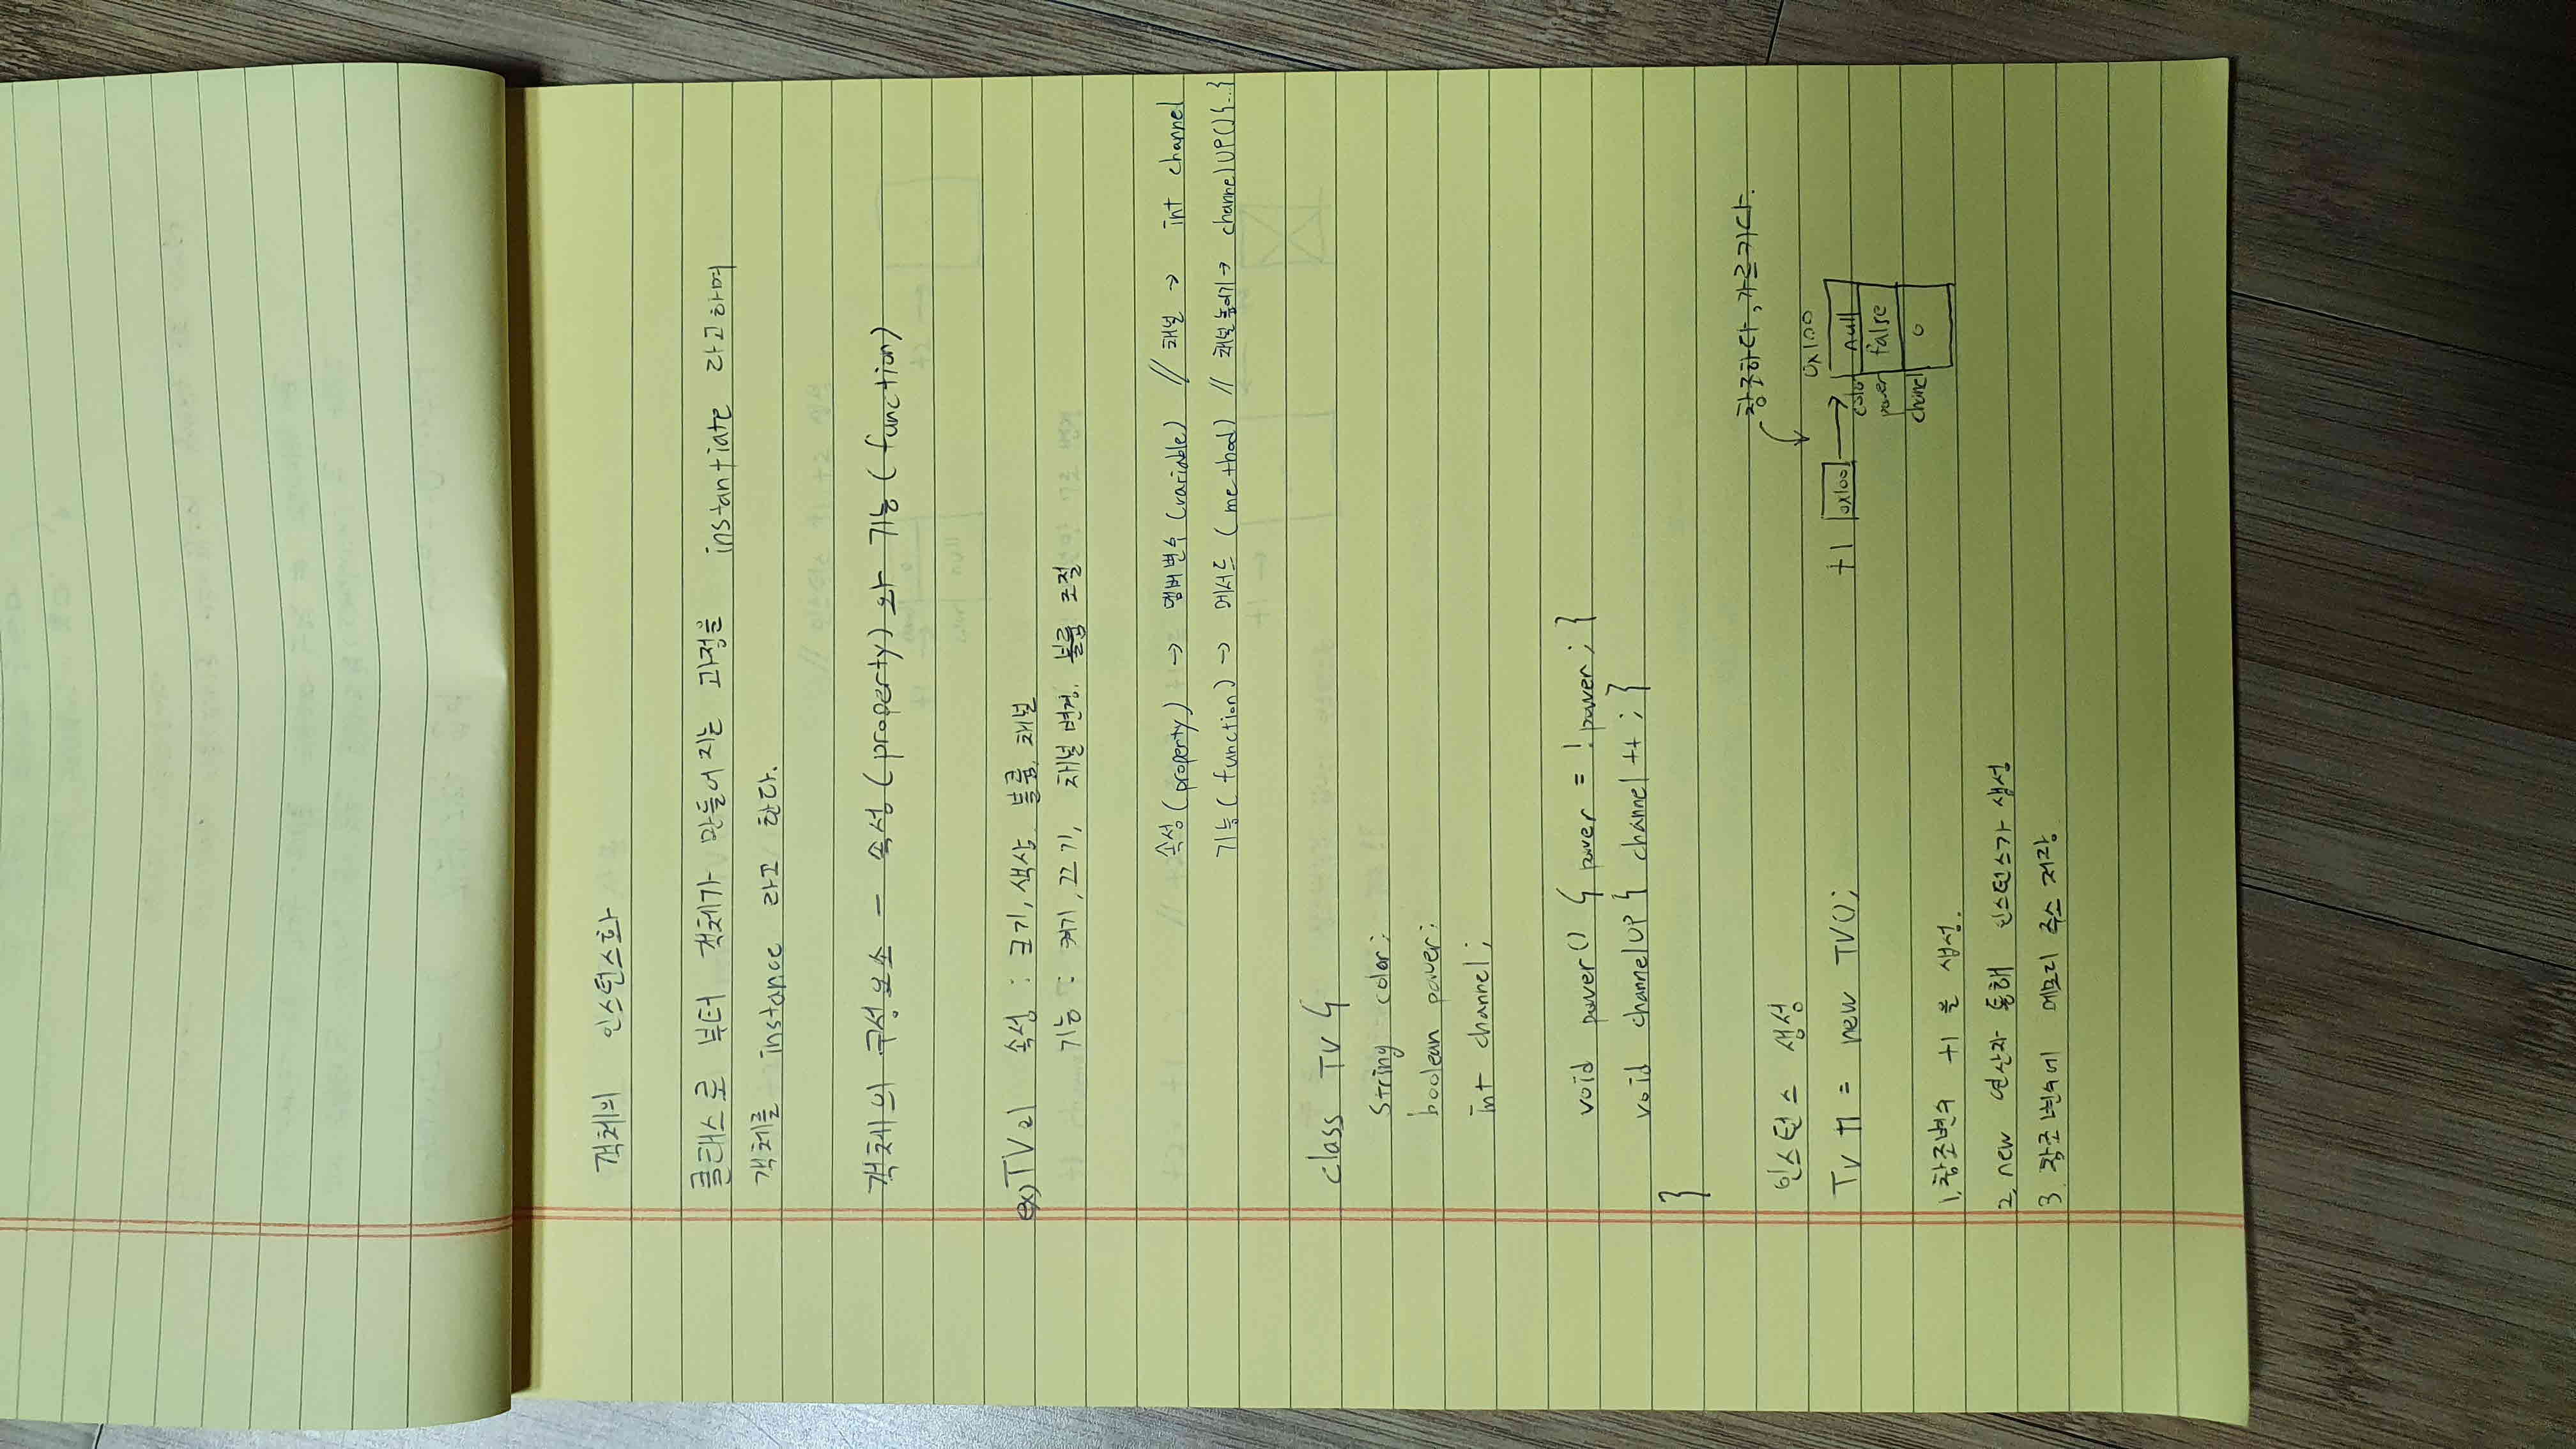 객체의 인스턴스화
클래스로 부터 객체가 만들어지는 과정을 instantiate 라고하며
객체를 instance 라고 한다.
객체의 구성요소 - 속성(property)와 기능(function)
ex) TV의 속성 : 크기, 색상, 볼륨, 채널
기능 : 켜기, 끄기, 채널 변경, 볼륨 조절
속성(property) → 멤버변수(variable) // 채널 → int channel
기능(function) → 메서드(method) // 채널높이기→ channelUP(){...}
class TV {
String color;
boolean power;
int channel;
void power() { power = !power; }
void channelUP { channel ++ ; }
}
참조하다, 가르키다.
인스턴스 생성
Tv t1 = new TV();
t1 0x100 → 0x100
color null
power false
chanel 0
1. 참조변수 t1 을 생성.
2. new 연산자 통해 인스턴스가 생성
3. 참조변수에 메모리 주소 저장